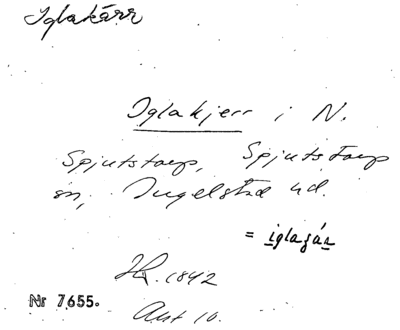 Iglakärr
Iglakjerr i N.
Spjutstorp, Spjutstorp
sn, Ingelstad hd.
= iglaʒár
1842
Akt 10.
Nr 7655.